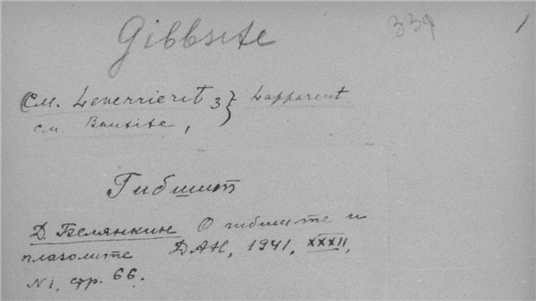 Gibbsite 339 1
См. Leverrierit 3 } Lapparent.
см. Bauxite, 1
Гибшит
Д. Белянкин О гибшите и
плазолите ДАН, 1941, XXXII,
N1, стр. 66.